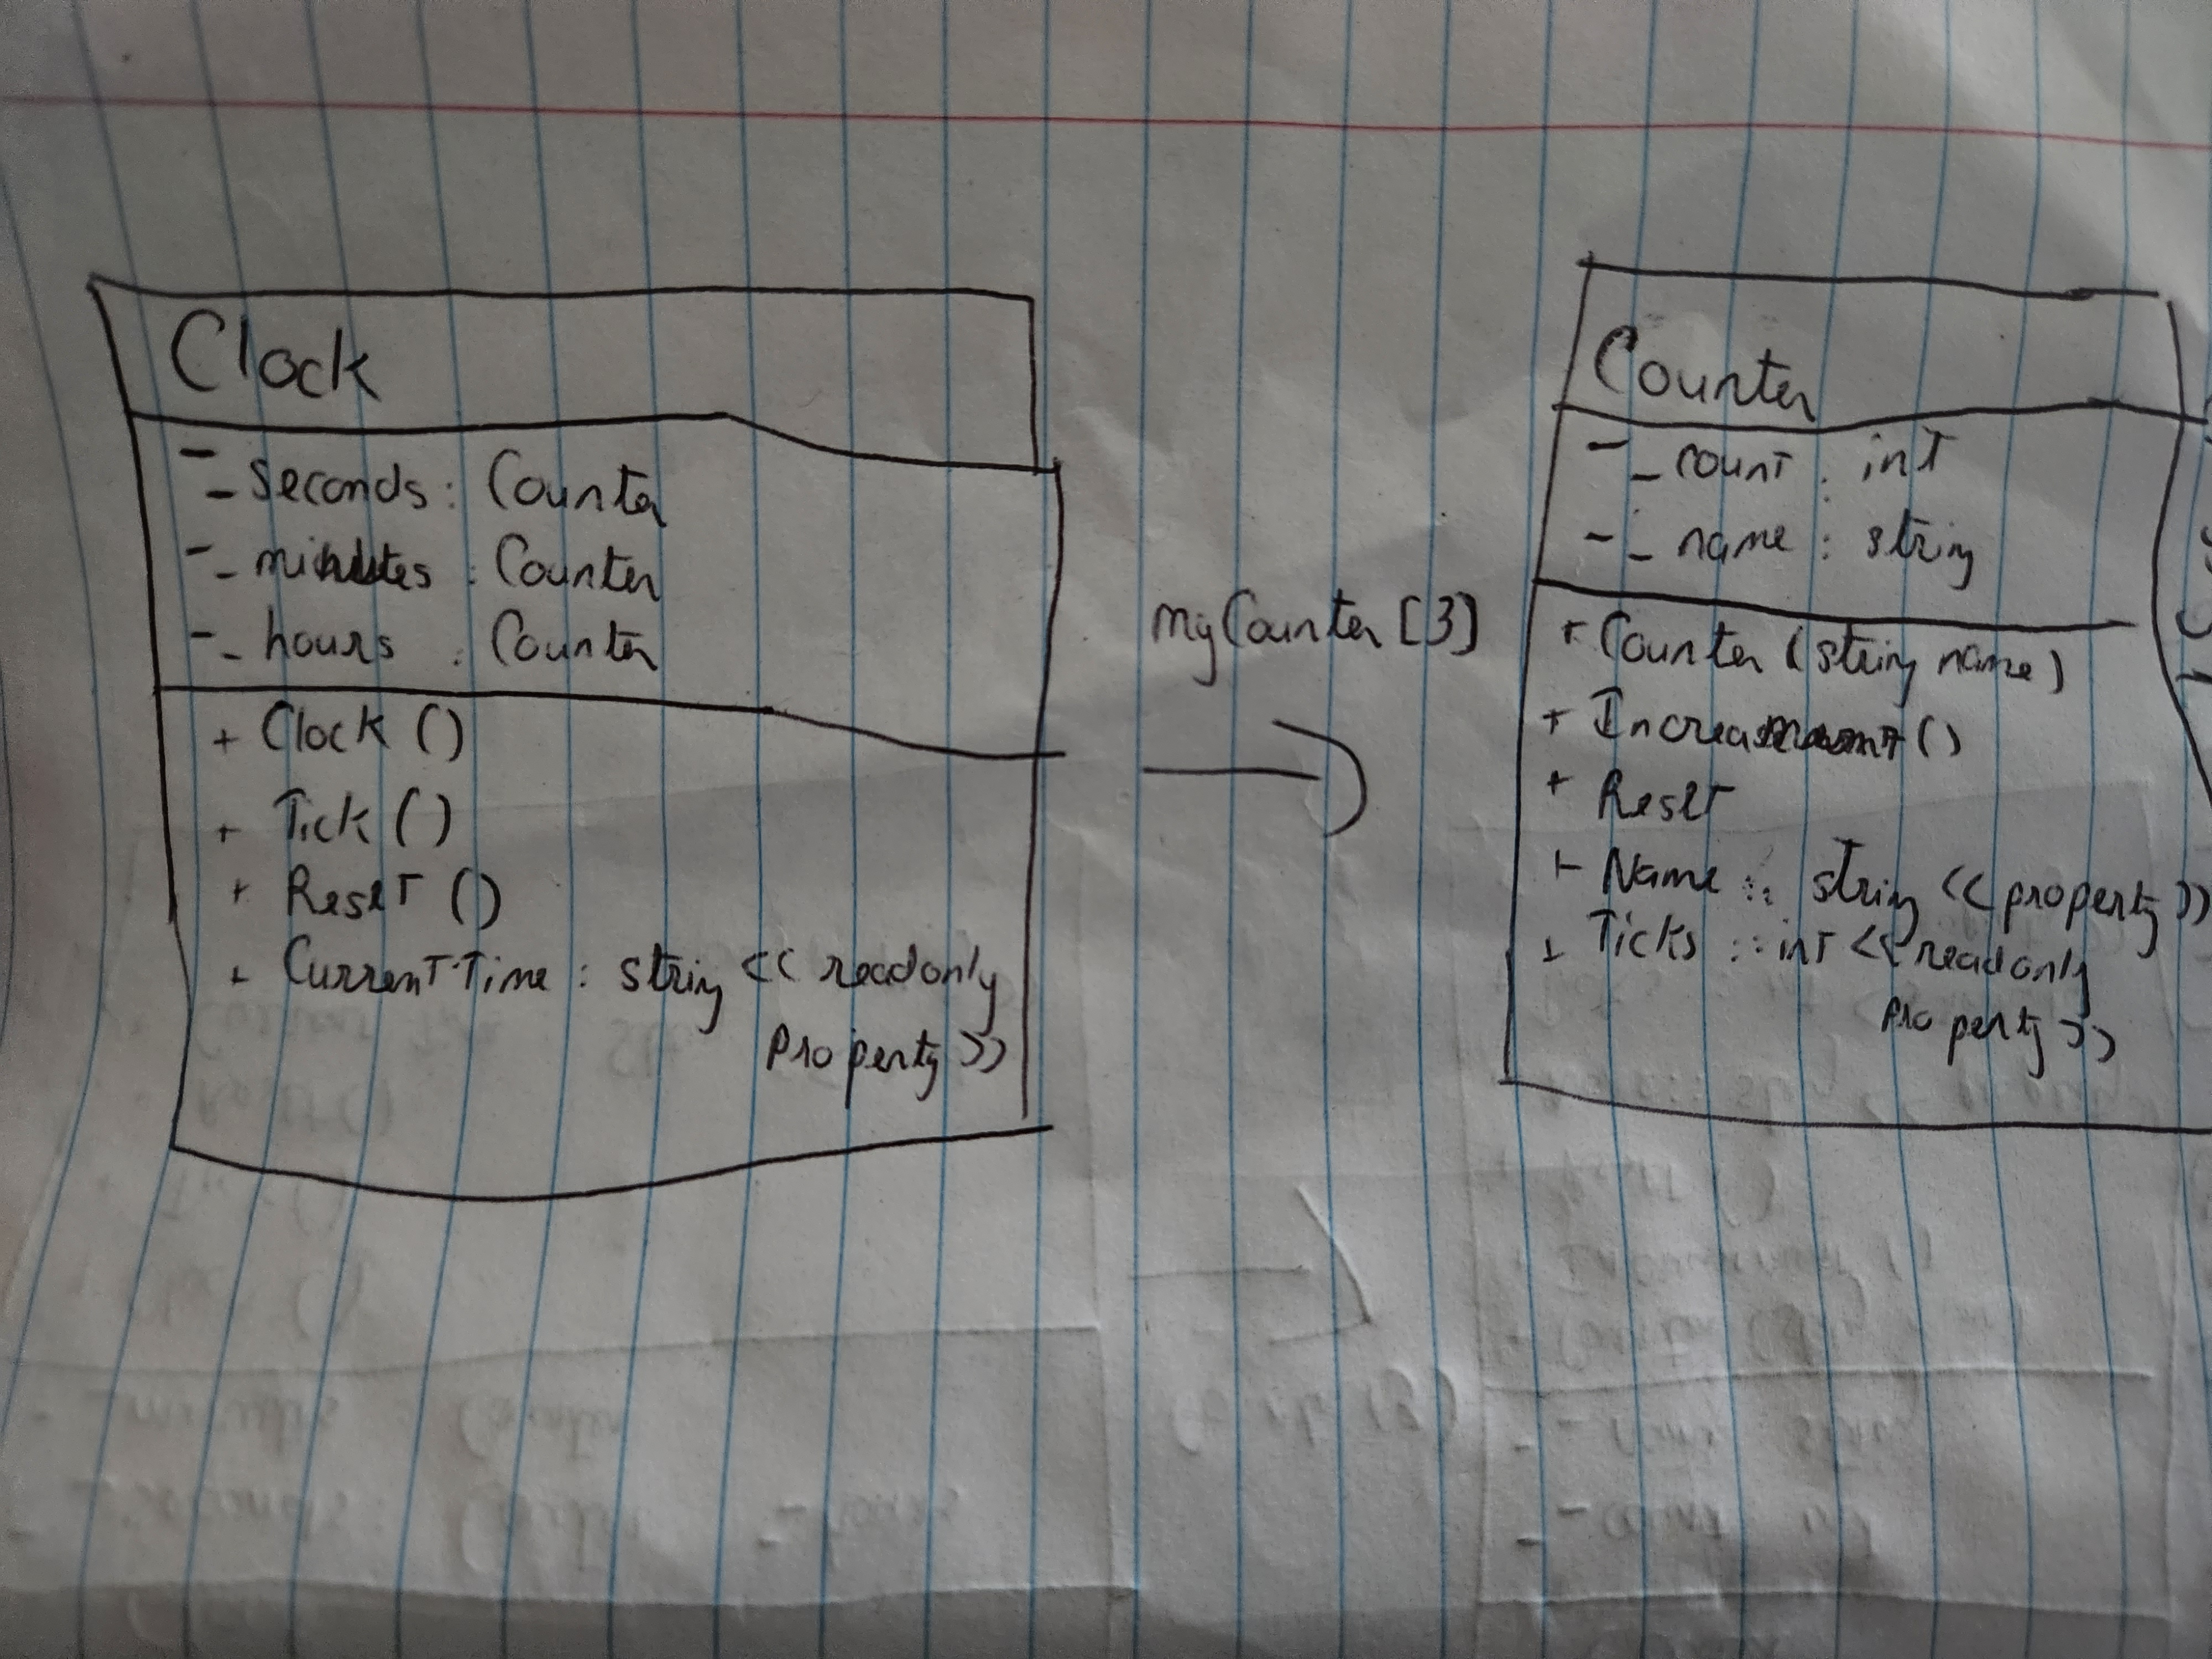 Clock
- _seconds : Counter
- _minutes : Counter
- _hours : Counter
+ Clock ()
+ Tick ()
+ Reset ()
+ CurrentTime : string << readonly
property >>
myCounter [3]
Counter
- _count : int
- _name : string
+ Counter (string name)
+ ()
+ Reset
+ Name : string << property >>
+ Ticks : int << readonly
property >>